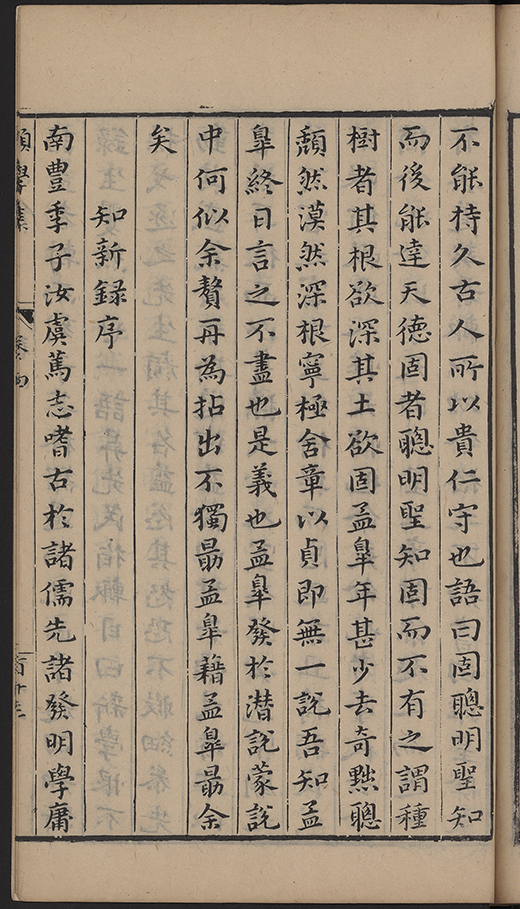 不能持久古人所以貴仁守也語曰固聰明聖知
而後能達天德固者聰明聖知固而不有之謂種
樹者其根欲深其土欲固孟皐年甚少去奇黜聰
頹然漠然深根寧極舍章以貞即無一說吾知孟
皐終日言之不盡也是義也孟皐發於潛說蒙說
中何似余贅再為拈出不獨勗孟皐藉孟皐勗余
矣
知新録序
南豐季子汝虞篤志嗜古於諸儒先諸發明學庸
學集
卷四